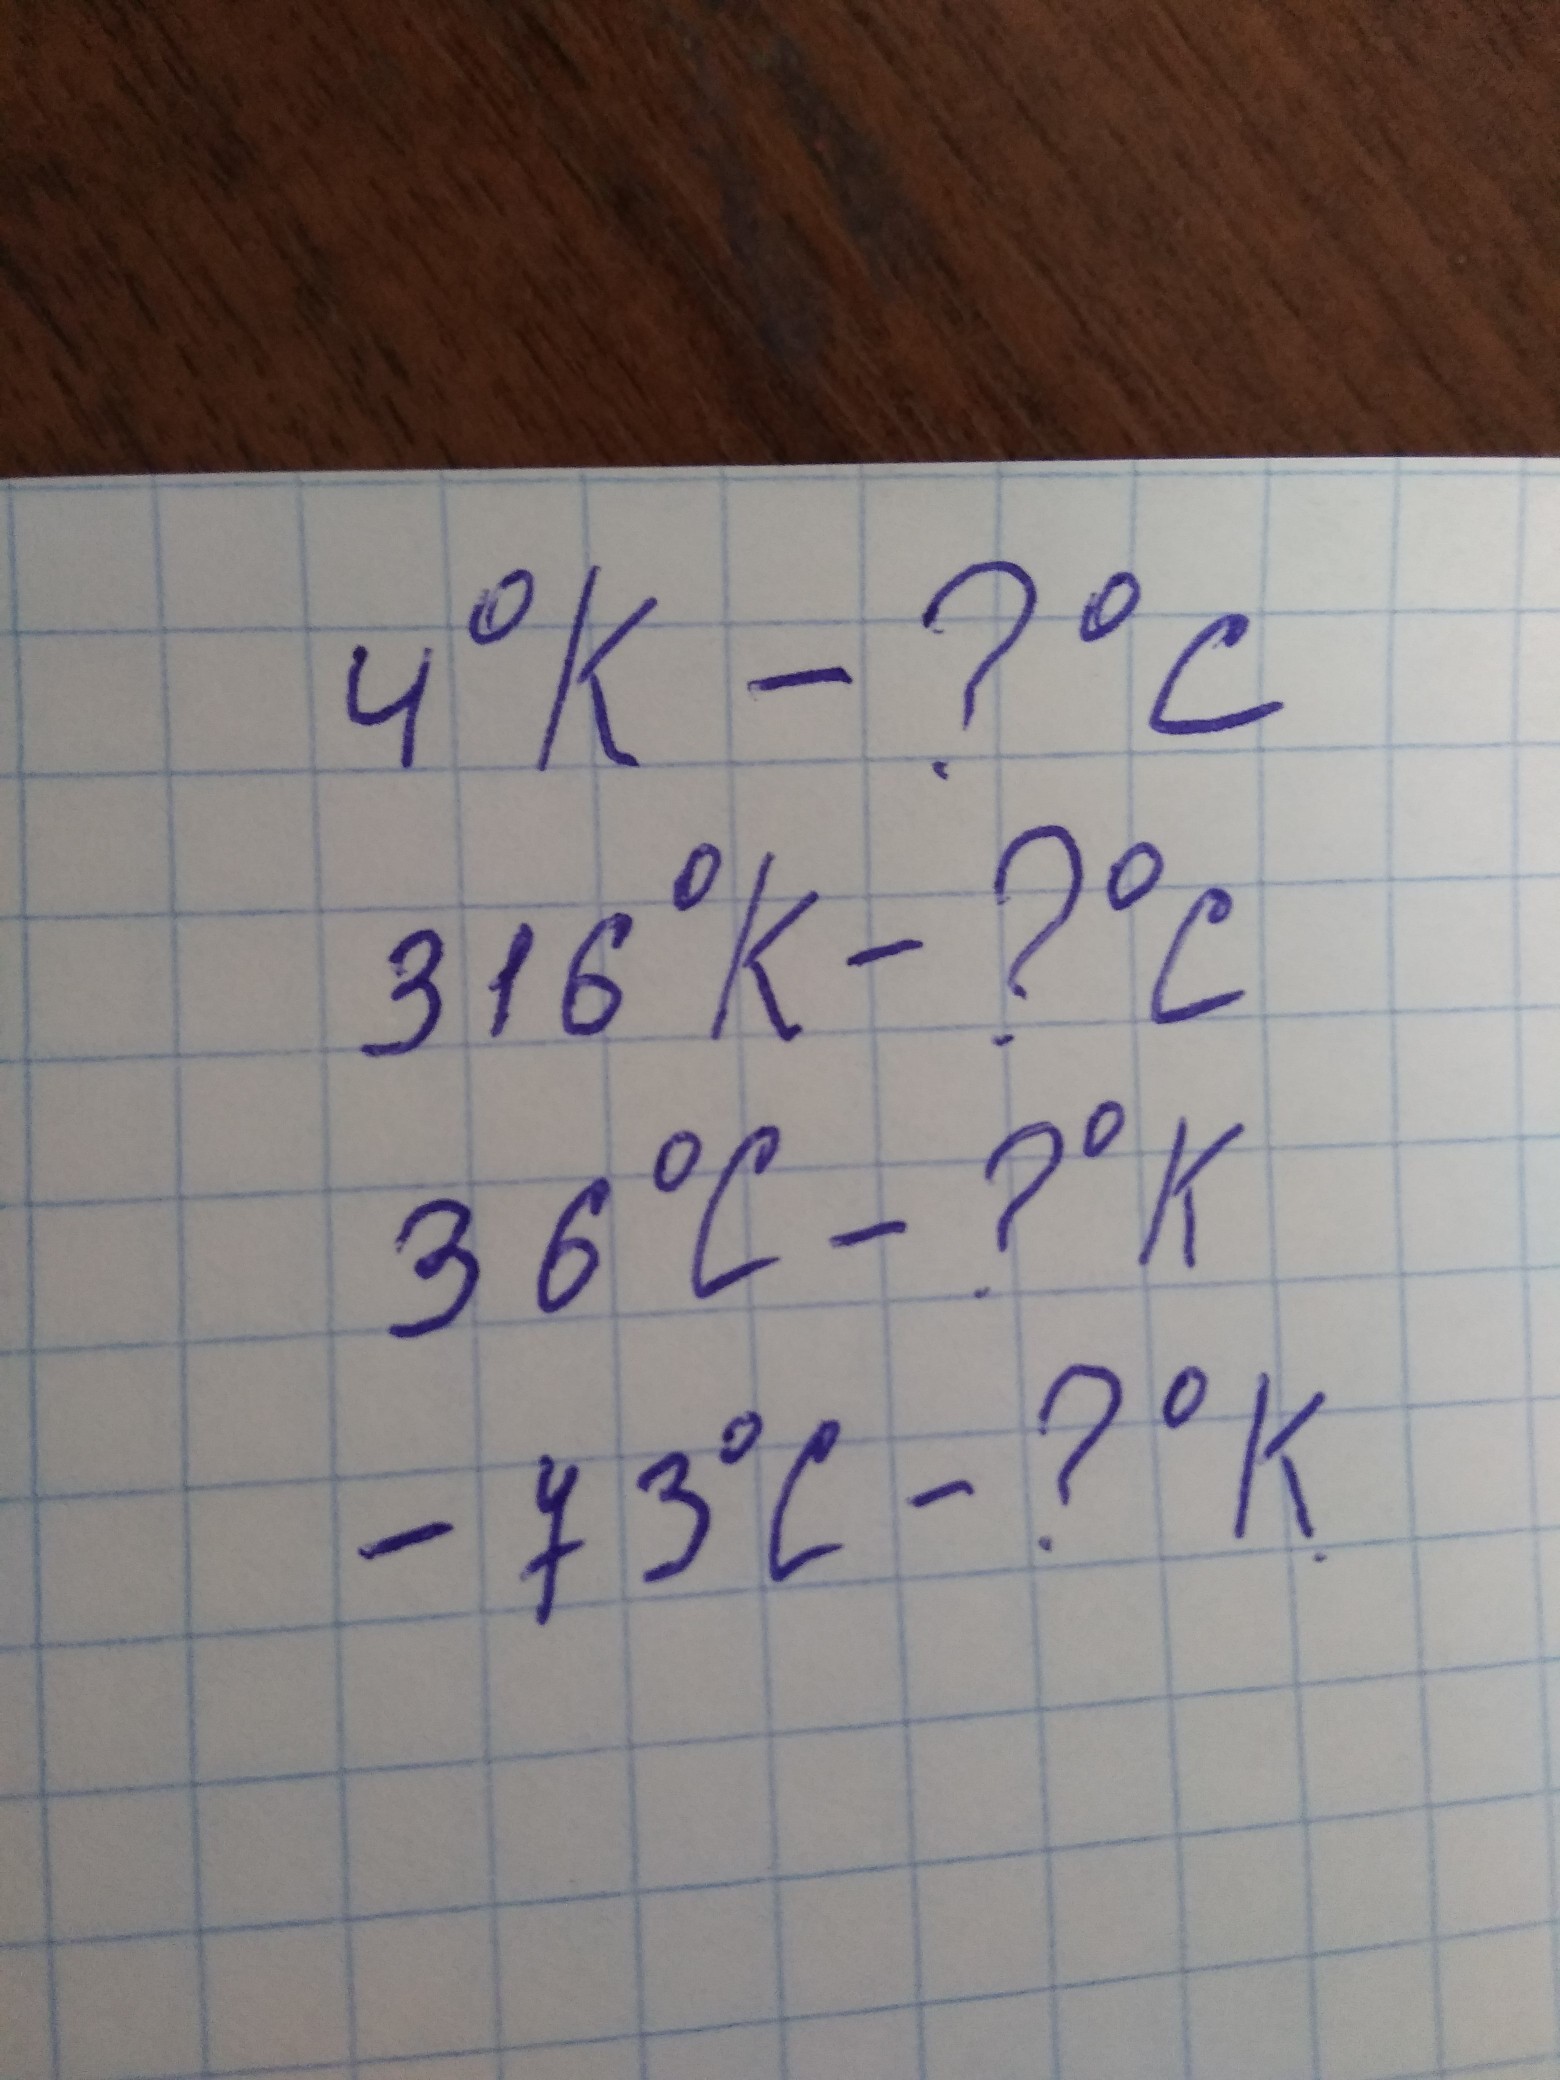 4°K - ?°C
316°K - ?°C
36°C - ?°K
- 73°C - ?°K.